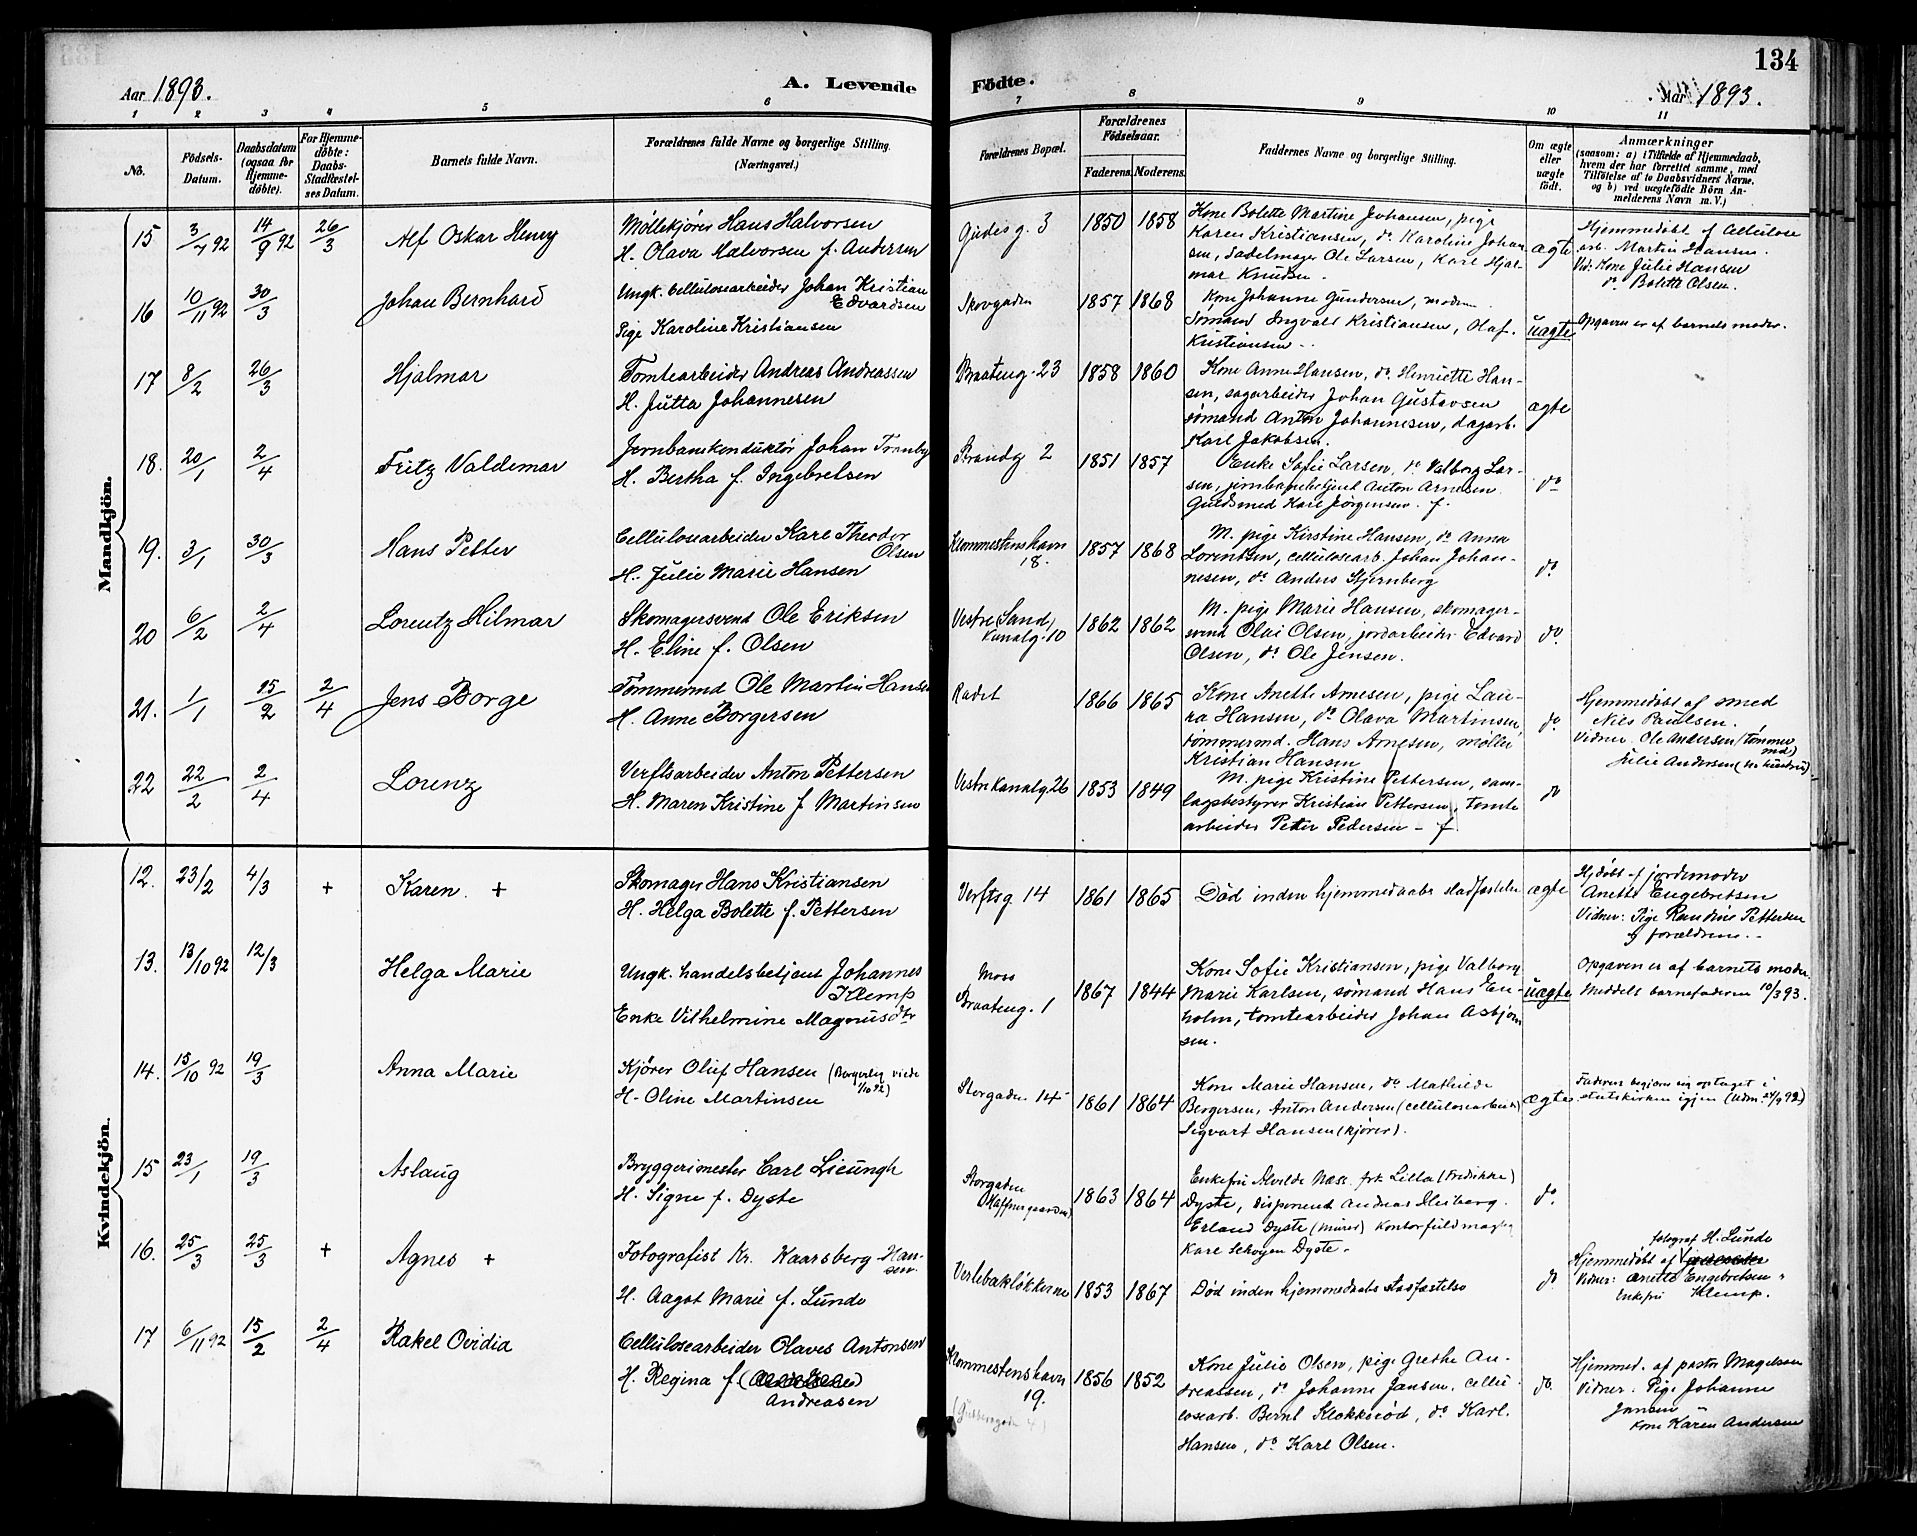 134
Aar 1893.
A. Levende Födte.
Aar 1893.
1 2 3 4 5 6 7 8 9 10 11
No.
Födsels-Datum.
Daabsdatum (ogsaa for Hjemme-döbte).
For Hjemme-döbte: Daabs-Stadfæstel-ses Datum.
Barnets fulde Navn.
Forældrenes fulde Navne og borgerlige Stilling.
(Næringsvei.)
Forældrenes Bopæl.
Forældrenes Födselsaar.
Faderens. Moderens.
Faddernes Navne og borgerlige Stilling.
Om ægte eller uægte födt.
Anmærkninger
(saasom: a) i Tilfælde af Hjemmedaab,
hvem der har forrettet samme, med
Tilföielse af to Daabsvidners Navne,
og b) ved uægtefödte Börn An-
melderens Navn m. V.)
Mandkjön.
15 3/7 92 14/9 92 26/3 Alf Oskar Henry
Møllekjører Hans Halvorsen
H. Olava Halvorsen f. Andersen
Gudes g. 3 1850 1858
Kone Bolette Martine Johansen, pige
Karen Kristiansen, do. Karoline Johan
sen, Sadelmager Ole Larsen, Karl Hjal-
mar Knudsen.
ægte
Hjemmedøbt af Cellulose
arb. Martin Hansen.
Vid: Kone Julie Hansen
do Bolette Olsen.
16 10/11 92 30/3 Johan Bernhard
Ungk. Cellulosearbeider Johan Kristian
Edvardsen
Pige Karoline Kristiansen
Skovgaden 1857 1868
Kone Johanne Gundersen, moderen.
Sømand Ingvald Kristiansen, Olaf.
Kristiansen.
uægte
Opgaven er af barnets moder.
17 8/2 26/3 Hjalmar
Tomtearbeider Andreas Andreassen
H. Jutta Johannesen
Braateng. 23 1858 1860
Kone Anne Hansen, do. Henriette Han-
sen, sagarbeider Johan Gustavsen
sømand Anton Johannesen, dagarb.
Karl Jakobsen.
ægte
18. 20/1 2/4 Fritz Valdemar
Jernbanekonduktør Johan Tranby
H. Bertha f. Ingebretsen
Strandg 2 1851 1857
Enke Sofie Larsen, do Valborg Lar-
sen, jernbanebetjent Anton Arnesen
Guldsmed Karl Jørgensen. f.
do
19. 3/1 30/3 Hans Petter
Cellulosearbeider Karl Theodor
Olsen
H. Julie Marie Hansen
Klommestenshavn
18. 1857 1868
M. pige Kirstine Hansen, do. Anna
Lorentsen, cellulosearb. Johan Johan-
nesen, do Anders Stjernberg
do.
20 6/2 2/4 Lorentz Hilmar
Skomagersvend Ole Eriksen
H. Eline f. Olsen
Vestre Sand,
Kanalg. 10 1862 1862
M. pige Marie Hansen, skomager-
svend Olai Olsen, jordarbeider Edvard
Olsen, do. Ole Jensen.
do.
21. 1/1 15/2 2/4 Jens Borge
Tømmermd Ole Martin Hansen
H. Anne Borgersen
Radet 1866 1865
Kone Anette Arnesen, pige Lau-
ra Hansen, do Olava Martinsen,
tømmermd. Hans Arnesen, møller
Kristian Hansen
do
Hjemmedøbt af smed
Nils Paulsen.
Vidner. Ole Andersen (tømmer
md.)
Julie Andersen (hs hustru)
22 22/2 2/4 Lorenz
Verftsarbeider Anton Pettersen
H. Maren Kristine f. Martinsen
Vestre Kanalg 26 1853 1849
M. pige Kristine Pettersen, sam-
lagsbestyrer Kristian Pettersen, tomte
arbeider Petter Pedersen - f
do
Kvindekjön.
12. 23/2 4/3 + Karen. +
Skomager Hans Kristiansen
H. Helga Bolette f. Pettersen
Verftsg 14 1861 1865
Død inden hjemmedaabs stadfæstelse
ægte
Hjdøbt af jordemoder
Anette Engebretsen
Vidner: Pige Randine Pettersen
og forældrene.
13. 13/10 92 12/3 Helga Marie
Ungk. handelsbetjent Johannes
Klemp
Enke Vilhelmine Magnusdtr
Moss
Braateng. 1 1867 1844
Kone Sofie Kristiansen, pige Valborg
Marie Karlsen, sømand Hans En-
holm, tomtearbeider Johan Asbjørn
sen.
uægte
Opgaven er af barnets moder.
Meddelt barnefaderen 10/3 93.
14. 15/10 92 19/3 Anna Marie
Kjører Oluf Hansen (Borgerlig viede
1/10 92)
H. Oline Martinsen
Storgaden 14 1861 1864
Kone Marie Hansen, do Mathilde
Bergersen, Anton Andersen (cellulosearbeider)
Sigvart Hansen (kjører).
ægte
Faderen begjærer sig optaget i
statskirken igjen
15 23/1 19/3 Aslaug
Bryggerimester Carl Lieungh
H. Signe f. Dyste
Storgaden
1863 1864
Enkefru Alvilde Næss. frk Lilla (Fredrikke)
Dyste, disponent Andreas Heiberg.
Erland Dyste (murer) kontorfuldmægtig
Karl Schøyen Dyste.
do.
16. 25/3 25/3 + Agnes +
Fotografist Kr. Kaarsberg Han-
sen.
H. Aagot Marie f. Lunde
Verlebakløkkerne 1853 1867
Død inden hjemmedaabs stadfæstelse
do
fotograf H. Lunde
Hjemmedøbt af
Vidner: Anette Engebretsen
Enkefru Klemp.
17 6/11 92 15/2 2/4 Rakel Ovidia
Cellulosearbeider Olaves Antonsen
H. Regina f.
Andreasen
Klommestenshavn
19. 1856 1852
Kone Julie Olsen, pige Grethe An-
dreassen, do Johanne Jansen. cellu-
losearb. Bernt Klokkerød, do Karl.
Hansen, do Karl Olsen.
do.
Hjemmed. af pastor Magelssen
Vidner: Pige Johanne
Jansen
kone Karen Andersen